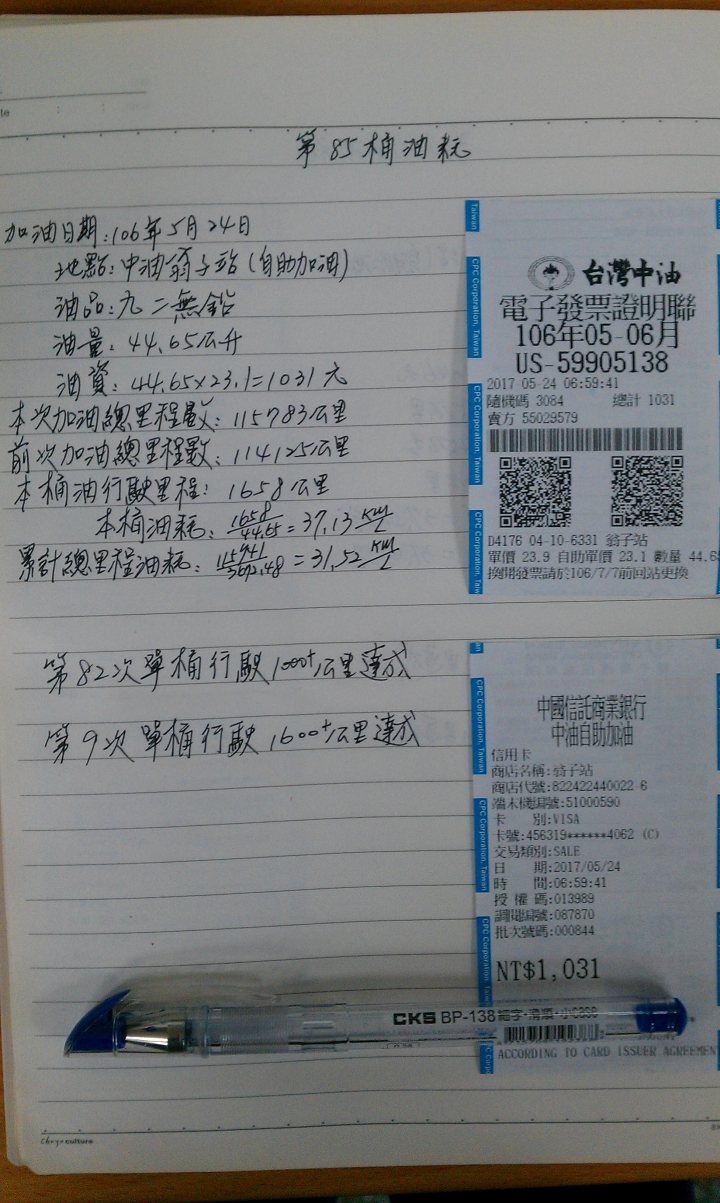 第85桶油耗
加油日期:106年5月24日
地點:中油翁子站(自助加油)
油品:九二無鉛
油量:44.65公升
油資:44.65×23.1=1031元
本次加油總里程數:115783公里
前次加油總里程數:114125公里
本桶油行駛里程:1658公里
本桶油耗:1658/44.65=37.13 KM/L
累計總里程油耗:115741/3672.48=31.52 KM/L
第82次單桶行駛1000+公里達成
第9次單桶行駛1600+公里達成
Taiwan
CPC Corporation, Taiwan
台灣中油
電子發票證明聯
106年05-06月
US-59905138
2017-05-24 06:59:41
隨機碼 3084 總計 1031
賣方 55029579
D4176 04-10-6331 翁子站
單價 23.9 自助單價 23.1 數量 44.65
換開發票請於106/7/7前回站更換
中國信託商業銀行
中油自助加油
信用卡
商店名稱:翁子站
商店代號:822422440022 6
端末機編號:51000590
卡 別:VISA
卡號:456319******4062 (C)
交易類別:SALE
日 期:2017/05/24
時 間:06:59:41
授權碼:013989
調閱編號:087870
批次號碼:000844
NT$1,031
CKS BP-138 細字·滑順
ACCORDING TO CARD ISSUER AGREEMEN
culture